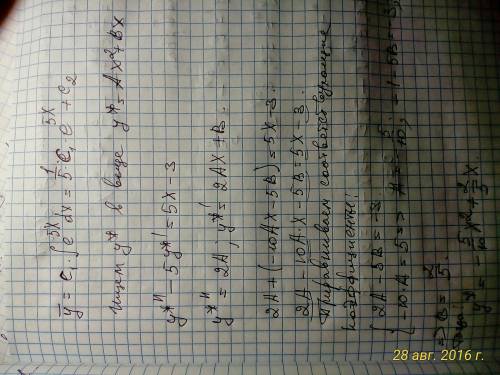 ȳ = C₁ ∫ e^{5x} dx = 1/5 C₁ e^{5x} + C₂
Ищем y* в виде y* = Ax² + Bx
y*'' - 5y*' = 5x - 3
y*'' = 2A; y*' = 2Ax + B.
2A + (-10Ax - 5B) = 5x - 3.
2A - 10A·x - 5B = 5x - 3.
Приравниваем соответствующие
коэффициенты:
{ 2A - 5B = -3
{ -10·A = 5 => A = -5/10; = -1 - 5B = -3;
=> B = 2/5.
y* = -5/10 x² + 2/5 x.
28 авг. 2016 г.